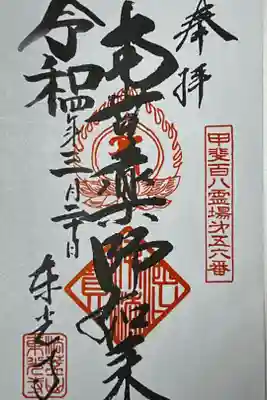 奉拝
甲斐百八霊場第五六番
南無薬師如来
令和四年三月二十日
東光寺